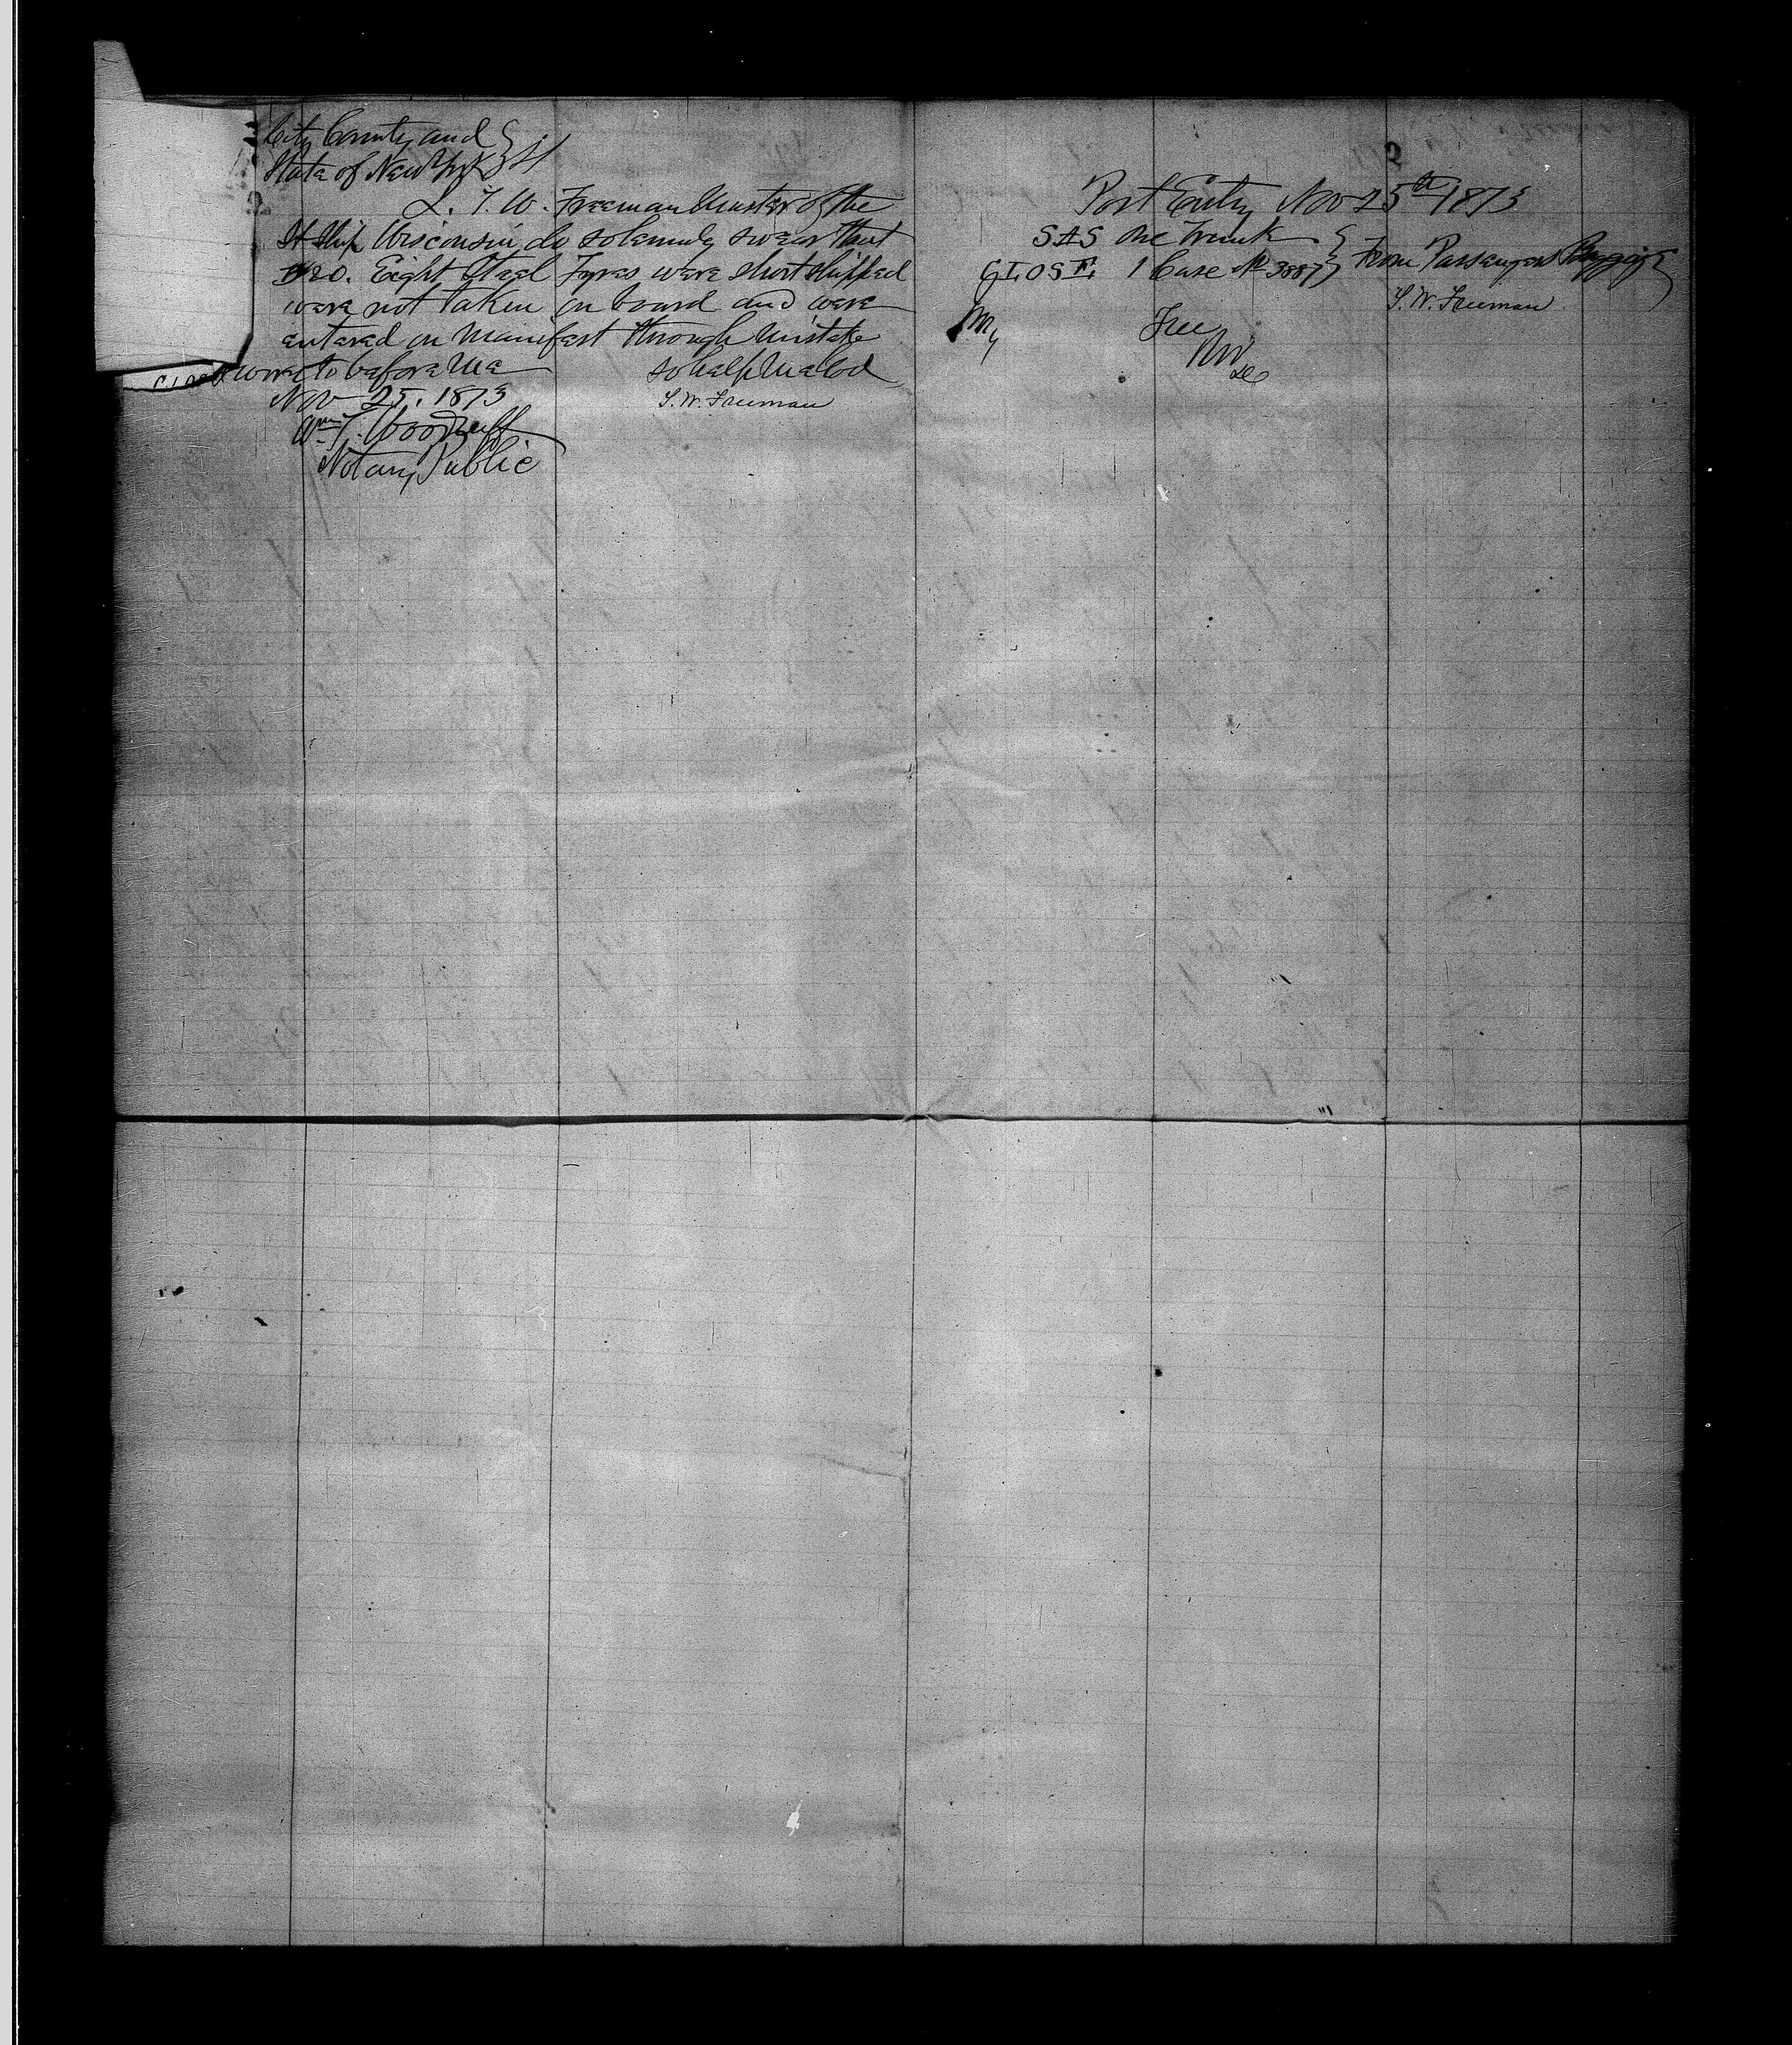 City County and } ss
State of New York
I. T. W. Freeman Master of the
St Ship Wisconsin, do solemnly swear that
Eight Steel Tyres were short shipped
were not taken on board and were
entered on Manifest through mistake
Sworn to before me so help me God
Nov 25. 1873 T. W. Freeman
Wm T. Woodruff
Notary Public
Post Entry Nov 25th 1873
SAS One Trunk }
CLOSE 1 Case No 3887 } From Passengers Baggage }
T. W. Freeman
Free